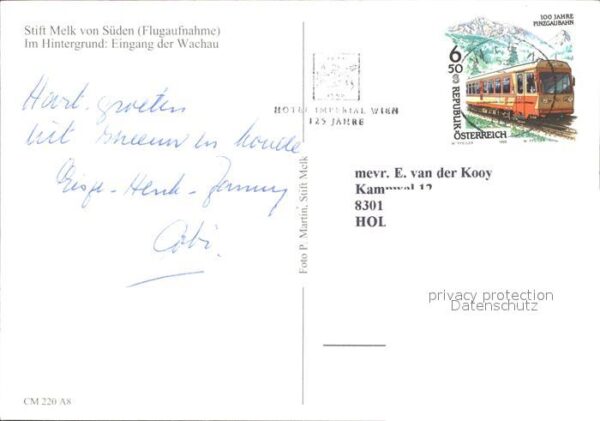 Stift Melk von Süden (Flugaufnahme)
Im Hintergrund: Eingang der Wachau
Hart. groeten
uit sneeuw en koude
Henk
Cobi
CM 220 A8
Foto P. Martin, Stift Melk
HOTEL IMPERIAL WIEN
125 JAHRE
100 JAHRE
PINZGAUBAHN
6
50
REPUBLIK
ÖSTERREICH
mevr. E. van der Kooy
8301
HOL
privacy protection
Datenschutz